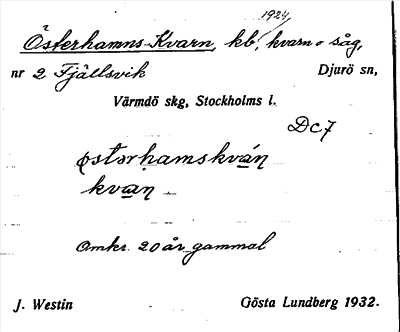 1924
Österhamns-Kvarn, kb, kvarn o såg,
nr 2 Fjällsvik Djurö sn,
Värmdö skg, Stockholms l.
Dc7
østərḥamskván
kvaṇ
Omkr. 20 år gammal
J. Westin Gösta Lundberg 1932.